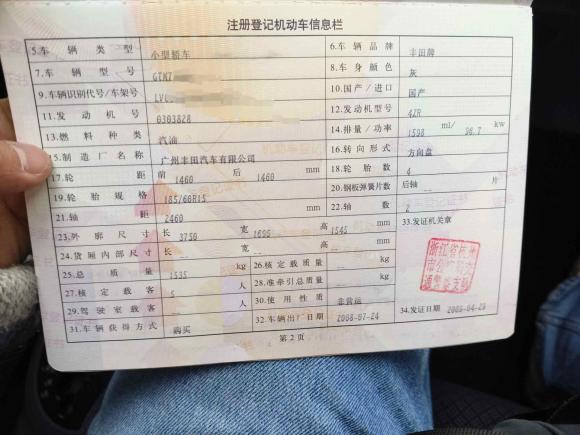 注册登记机动车信息栏
5.车辆类型 小型轿车 6.车辆品牌 丰田牌
7.车辆型号 GTM7 8.车身颜色 灰
9.车辆识别代号/车架号 LV 10.国产/进口 国产
11.发动机号 0303828 12.发动机型号 4ZR
13.燃料种类 汽油 14.排量/功率 1598 ml/ kw
15.制造厂名称 广州丰田汽车有限公司 16.转向形式 方向盘
17.轮距 前 1460 后 1460 mm 18.轮胎数 4
19.轮胎规格 185/60R15 20.钢板弹簧片数 后轴 -- 片
21.轴距 2460 mm 22.轴数 2
23.外廓尺寸 长 3750 宽 1695 高 1545 mm 33.发证机关章
24.货厢内部尺寸 长 -- 宽 -- 高 -- mm
浙江省杭州
市公安局交
通警察支队
25.总质量 1535 kg 26.核定载质量 -- kg
27.核定载客 5 人 28.准牵引总质量 -- kg
29.驾驶室载客 -- 人 30.使用性质 非营运
31.车辆获得方式 购买 32.车辆出厂日期 34.发证日期
第2页